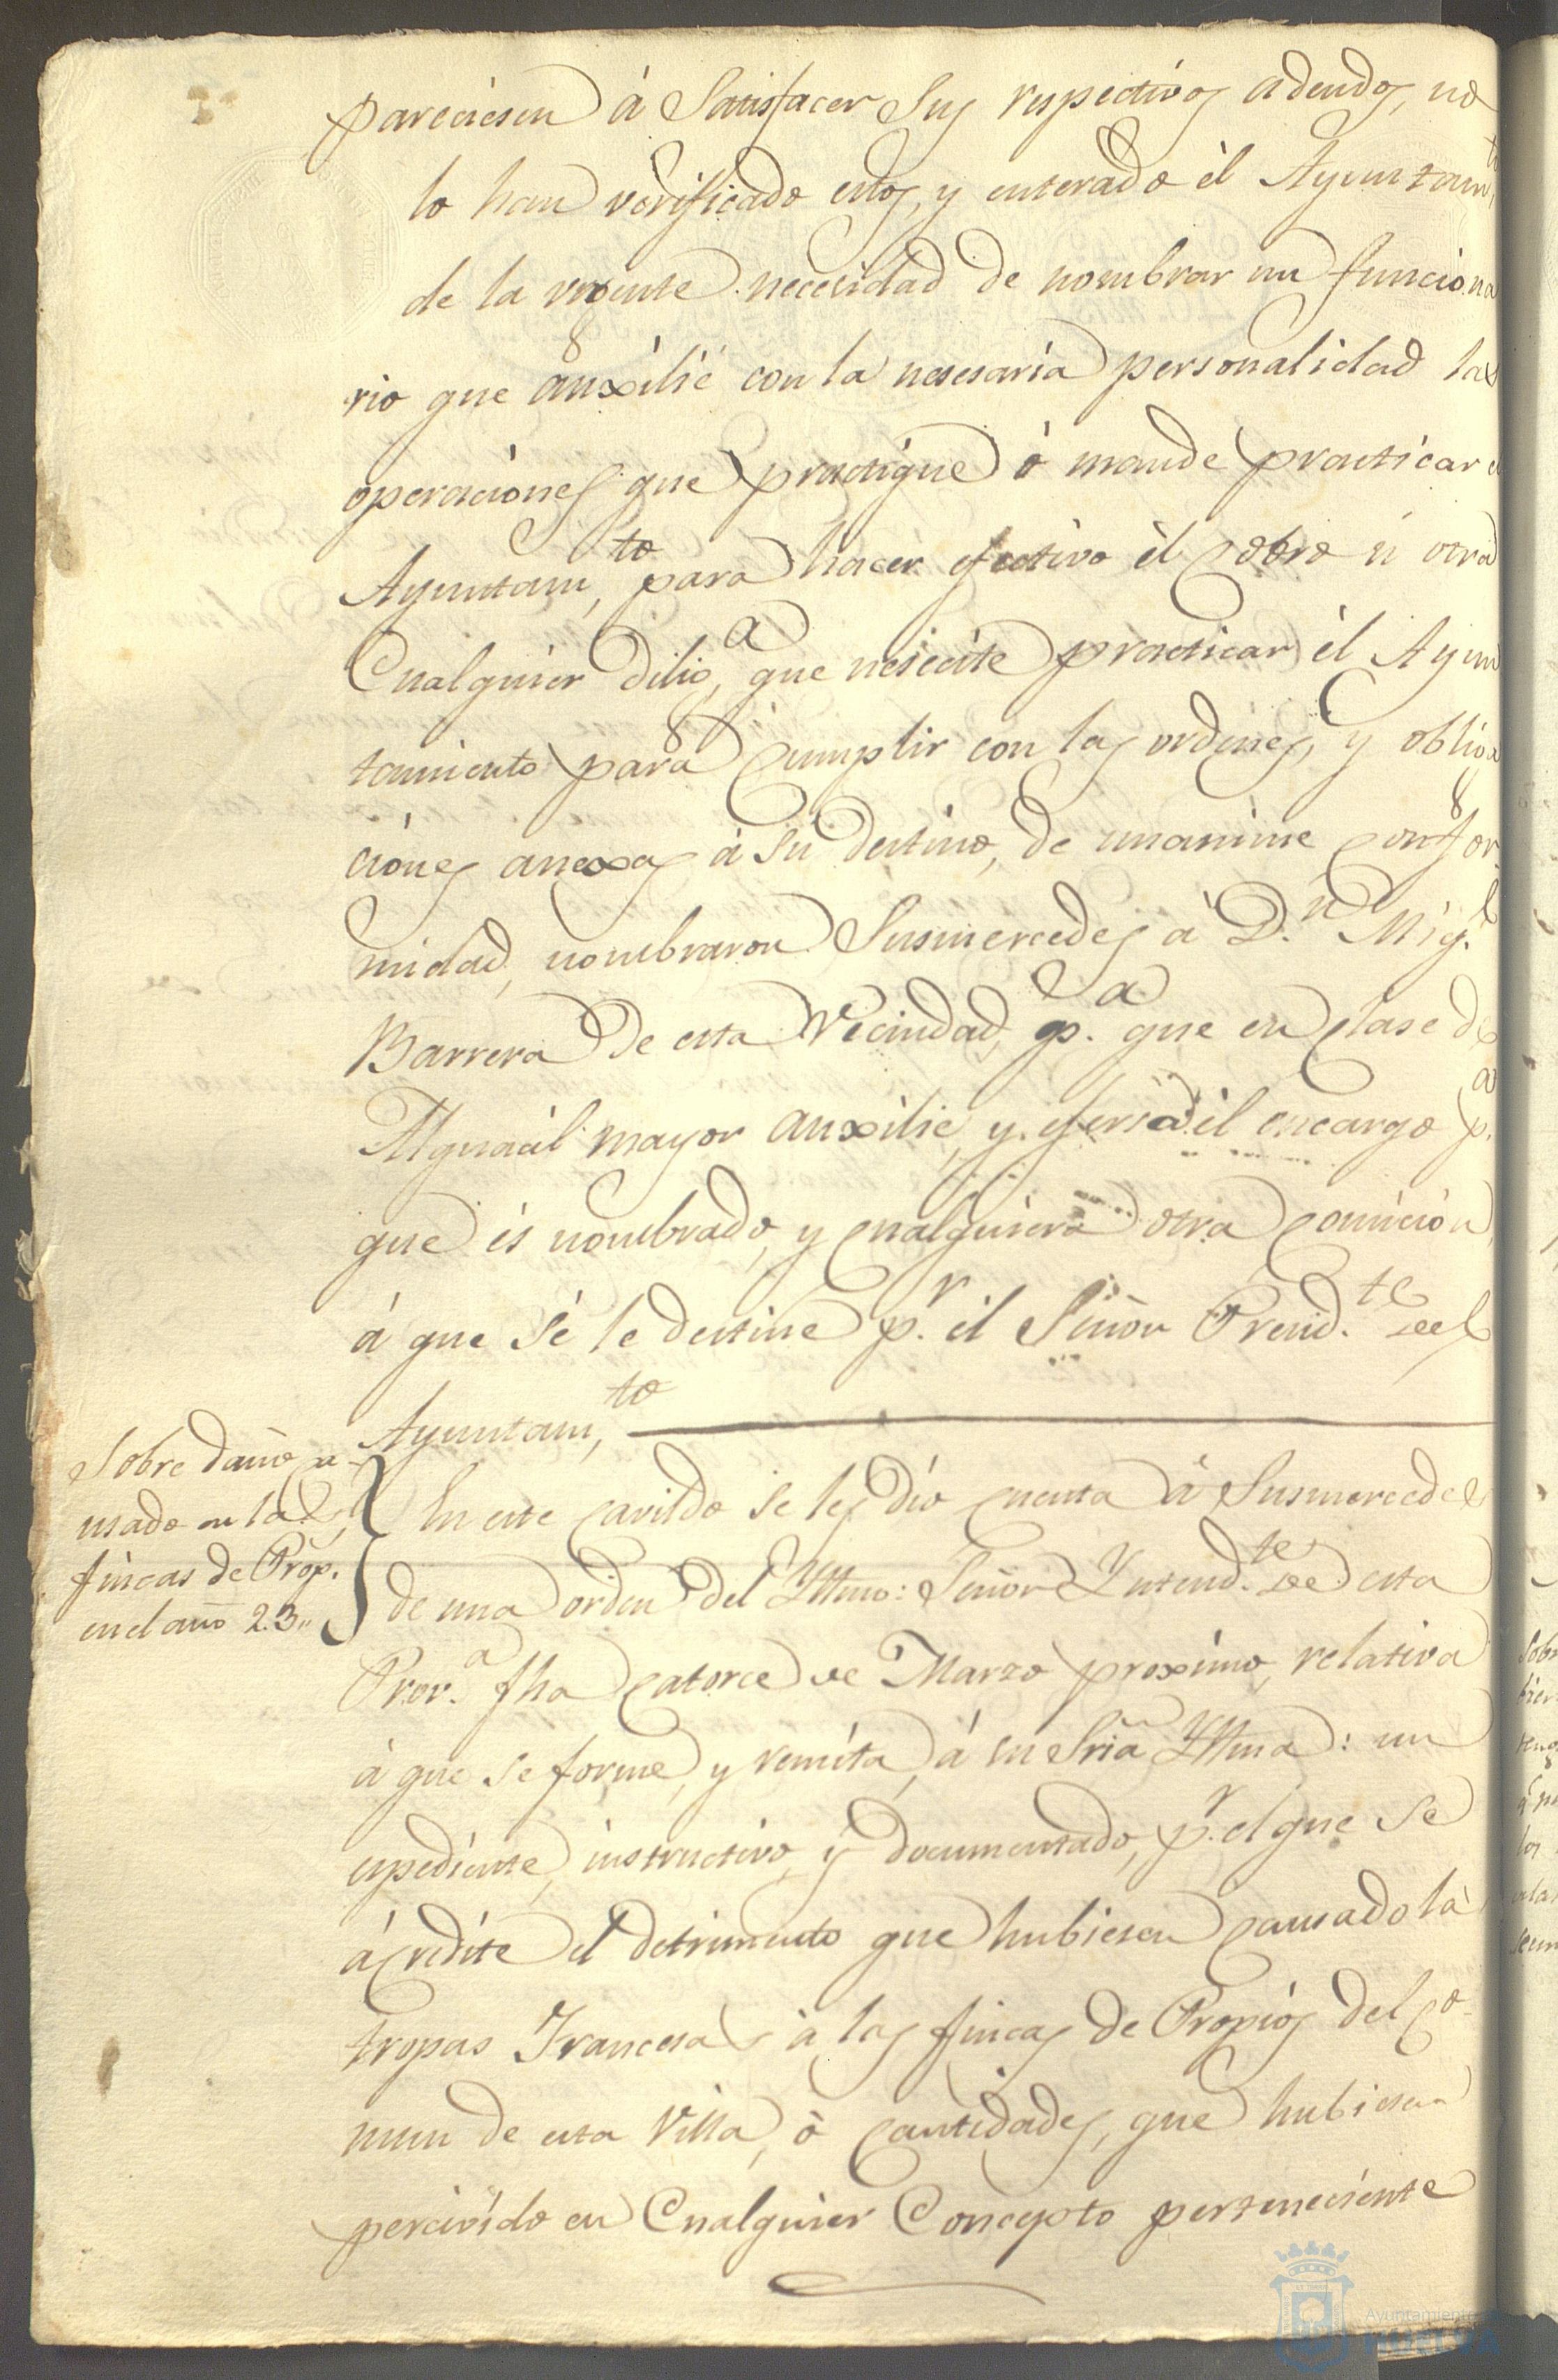 pareciesen á Satisfacer Sus respectivos adeudos, no
lo han verificado estos, y enterado él Ayuntam,to
de la urgente necesidad de nombrar un funciona
rio que auxílie con la nesesaria personalidad las
operaciónes que practíque ó mande practicar el
Ayuntam,to para hacer efectivo él cobro ú otra
Cualquier Dilig,a que nesecite practicar él Ayun
tamiento para Cumplir con las ordenes, y obliga
ciónes anexas á Su destino, de unanime confor-
midad, nombraron Susmercedes á D.n Mig.l
Barrera de esta Vecindad, p.a que en Clase de
Alguacil mayor auxilie, y ejersa él encargo p.a
que és nombrado, y qualquiera otra Comición
á que sé le destine p.r él Señor Presid.te del
Ayuntam,to
Sobre daño ca-
usado en las
fincas de Prop.s
en el año 23,,
En este Cavildo se les dio Cuenta á Susmercedes
de una orden del Yltmo: Señor Yntend.te de esta
Prov.a fha Catorce de Marzo proxímo, relativa
á que se forme, y remíta, á su Sria Yltma: un
espediente, instructivo, y documentado, p.r el que se
ácredíte el detrimento que hubiesen causado las
tropas Francesas á las fincas de Propiós del Co-
mun de esta Villa, ó Cantidades, que hubiesen
percivído en Cualquier Concepto perteneciénte
Ayuntamiento
HUELVA